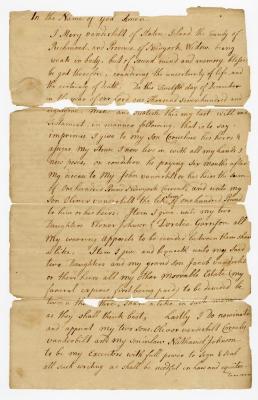 In the Name of God Amen.
I Mary vanderbilt of Staten Island the County of
Richmond and Province of Newyork Widow being
weak in body, but of sound mind and memory, blessed
be god therefore, considering the uncertainty of life and
the certainty of death. Do this Twelfth day of December
in the year of our lord one thousand Sevenhundred and
make and this my last will and
testament, in manner following, that is to say
imprimis I give to my Son Cornelius his heirs &
assigns my House I now live in with all my lands I
now possess, on condition he paying Six Months after
my decease to My John vanderbilt or his heirs the sum
of One hundred Pounds Newyork Currency and unto my
Son Oliver vanderbilt the like Sum of One hundred Pounds
to him or his heirs. Item I give unto my two
Daughters Elenor Johnson & Dorothe Garrison all
My wearing apparels to be divided between them share
alike. Item I give and bequeath unto my said
two Daughters and my grand son Jacob vanderbilt
or them heirs all my Other Moveable Estate (my
funeral expence first being paid) to be divided be
tween the three, share alike in such
as they shall think best, Lastly I Do nominate
and appoint my two Sons Oliver vanderbilt Cornelius
vanderbilt and my Soninlaw Nathaniel Johnson
to be my Executors with full power to Sign & Seal
all such writing as shall be needful in law and equity